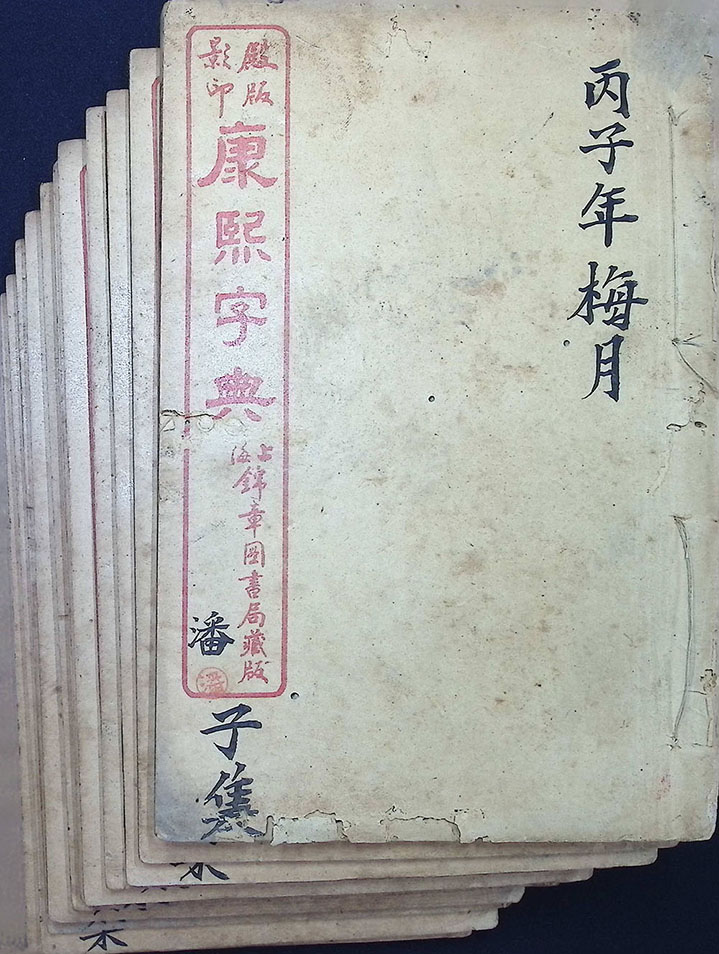 丙子年梅月
殿版
影印
康熙字典
上海
錦章圖書局藏版
潘
子集